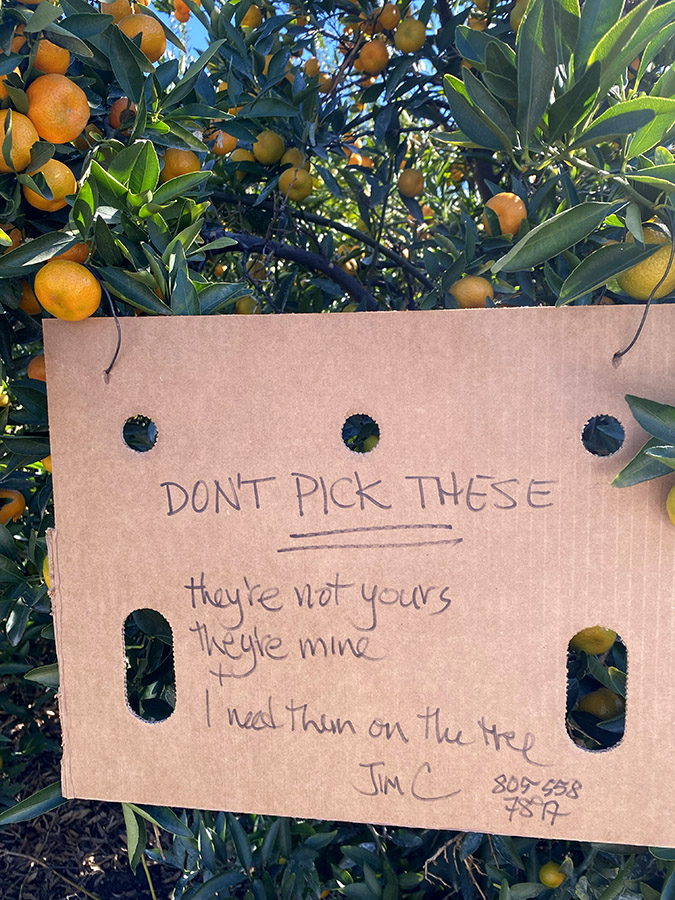 DON'T PICK THESE
they're not yours
they're mine
+
I need them on the tree
JIM C
805 558